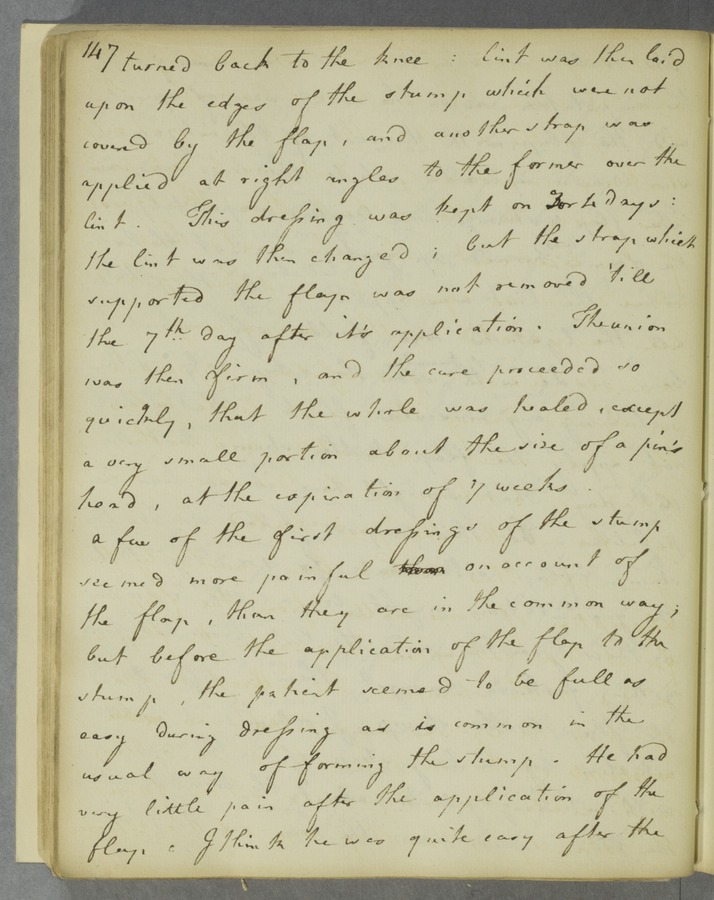 147 turned back to the knee : lint was then laid
upon the edges of the stump which were not
covered by the flap, and another strap was
applied at right angles to the former over the
lint. This dressing was kept on 3 or 4 days :
the lint was then changed ; but the strap which
supported the flap was not removed 'till
the 7th day after it's application. The union
was then firm, and the cure proceeded so
quickly, that the whole was healed, except
a very small portion about the size of a pin's
head, at the expiration of 7 weeks.
a few of the first dressings of the stump
seemed more painful on account of
the flap, than they are in the common way ;
but before the application of the flap to the
stump, the patient seemed to be full as
easy during dressing as is common in the
usual way of forming the stump. He had
very little pain after the application of the
flap : I think he was quite easy after the